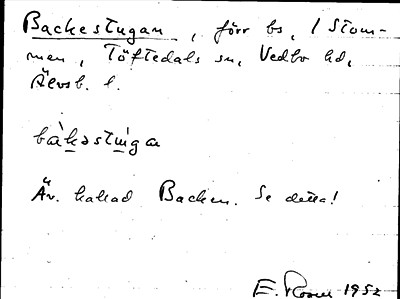 Backestugan, förr bs, i Stom-
men, Töftedals sn, Vedbo hd,
Älvsb. l.
bàkəstuga
Äv. kallad Backen. Se detta!
E. 1952